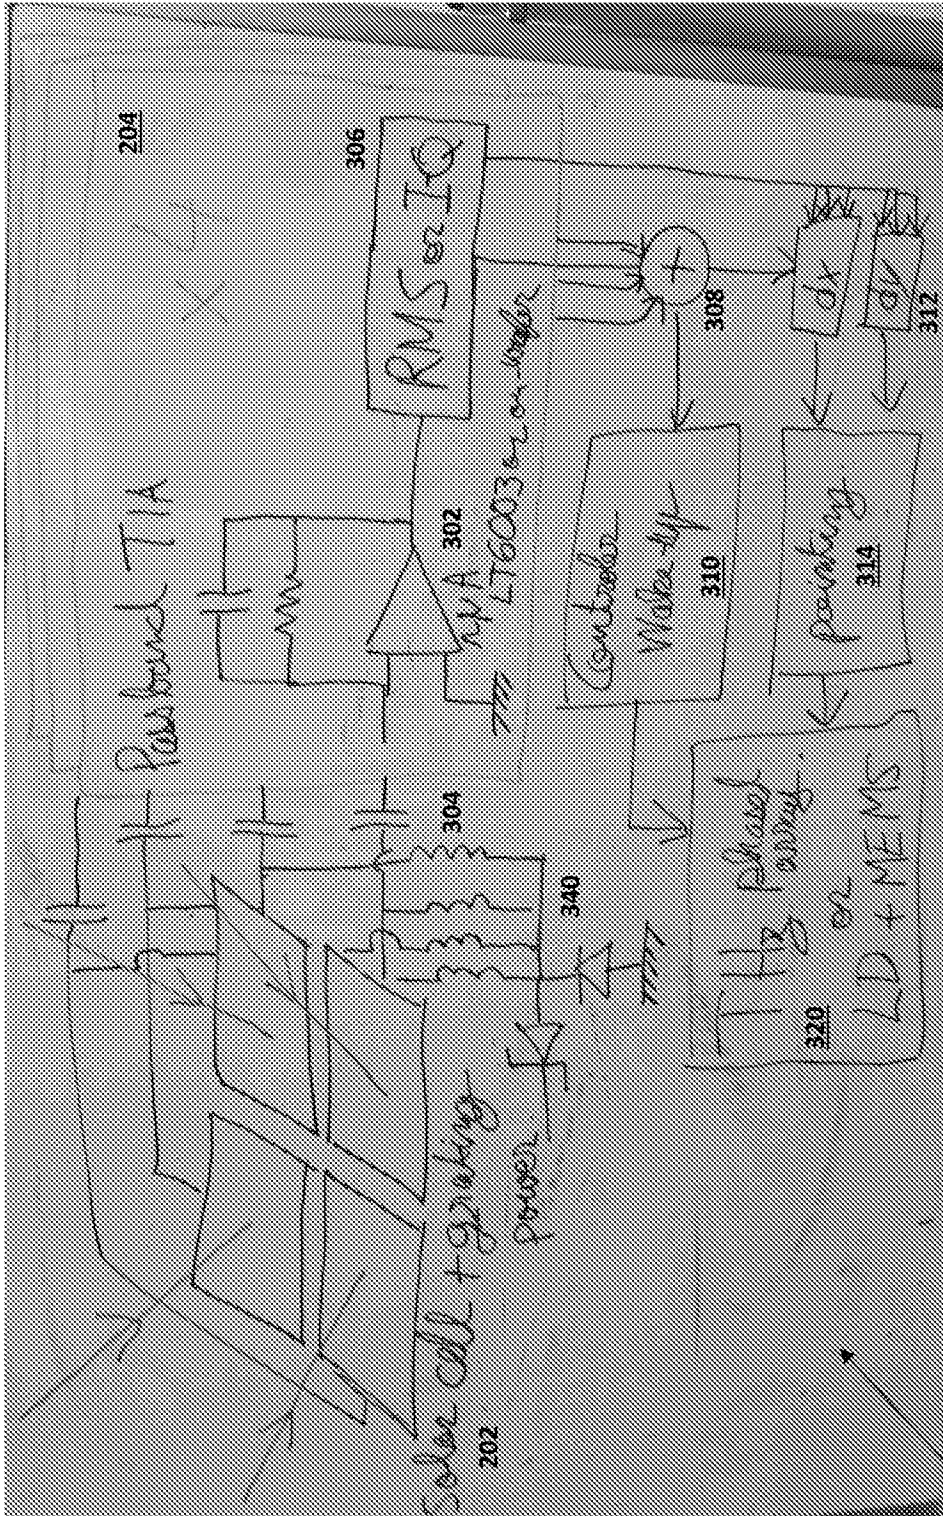 204
Passband TIA
306
RMS or IQ
302
nA
LT6003 or on wafer
304
340
308
Controller
Wake up
310
dx
dy
312
pointing
314
THz Phased
array
or
LD + MEMS
320
Solar cell + grating
power
202